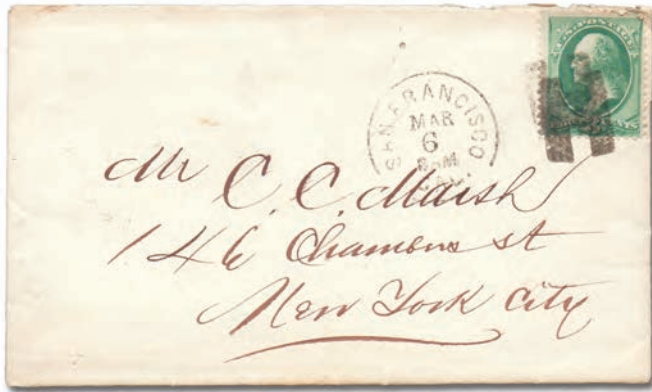 SAN FRANCISCO
MAR
6
CAL.
Mr C. C. Marsh
146 Chambers st
New York City